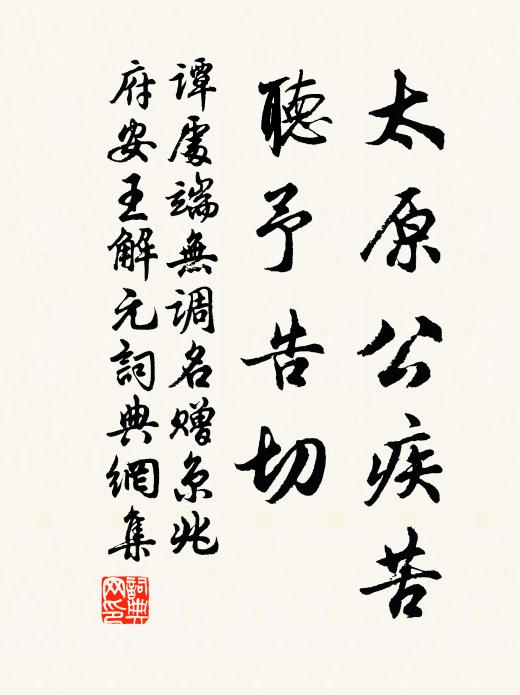 太原公疾苦
聽予告切
譚處端無調名贈京兆
府安王解元詞典網集
詞典网印